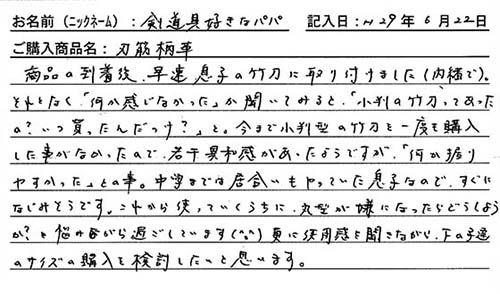 お名前(ニックネーム):剣道具好きなパパ 記入日:H29年6月22日
ご購入商品名:刃筋柄革
商品の到着後、早速息子の竹刀に取り付けました(内緒で)。
それとなく「何か感じなかった」か聞いてみると、「小判の竹刀ってあった
の?いつ買ったんだっけ?」と。今まで小判型の竹刀を一度も購入
した事がなかったので、若干異和感があったようですが、「何か握り
やすかった」との事。中学までは居合いもやっていた息子なので、すぐに
なじみそうです。これから使っていくうちに、丸型が嫌になったらどうしよう
か?と悩みながら過ごしています(^^)更に使用感を聞きながら、下の子達
のサイズの購入を検討したいと思います。